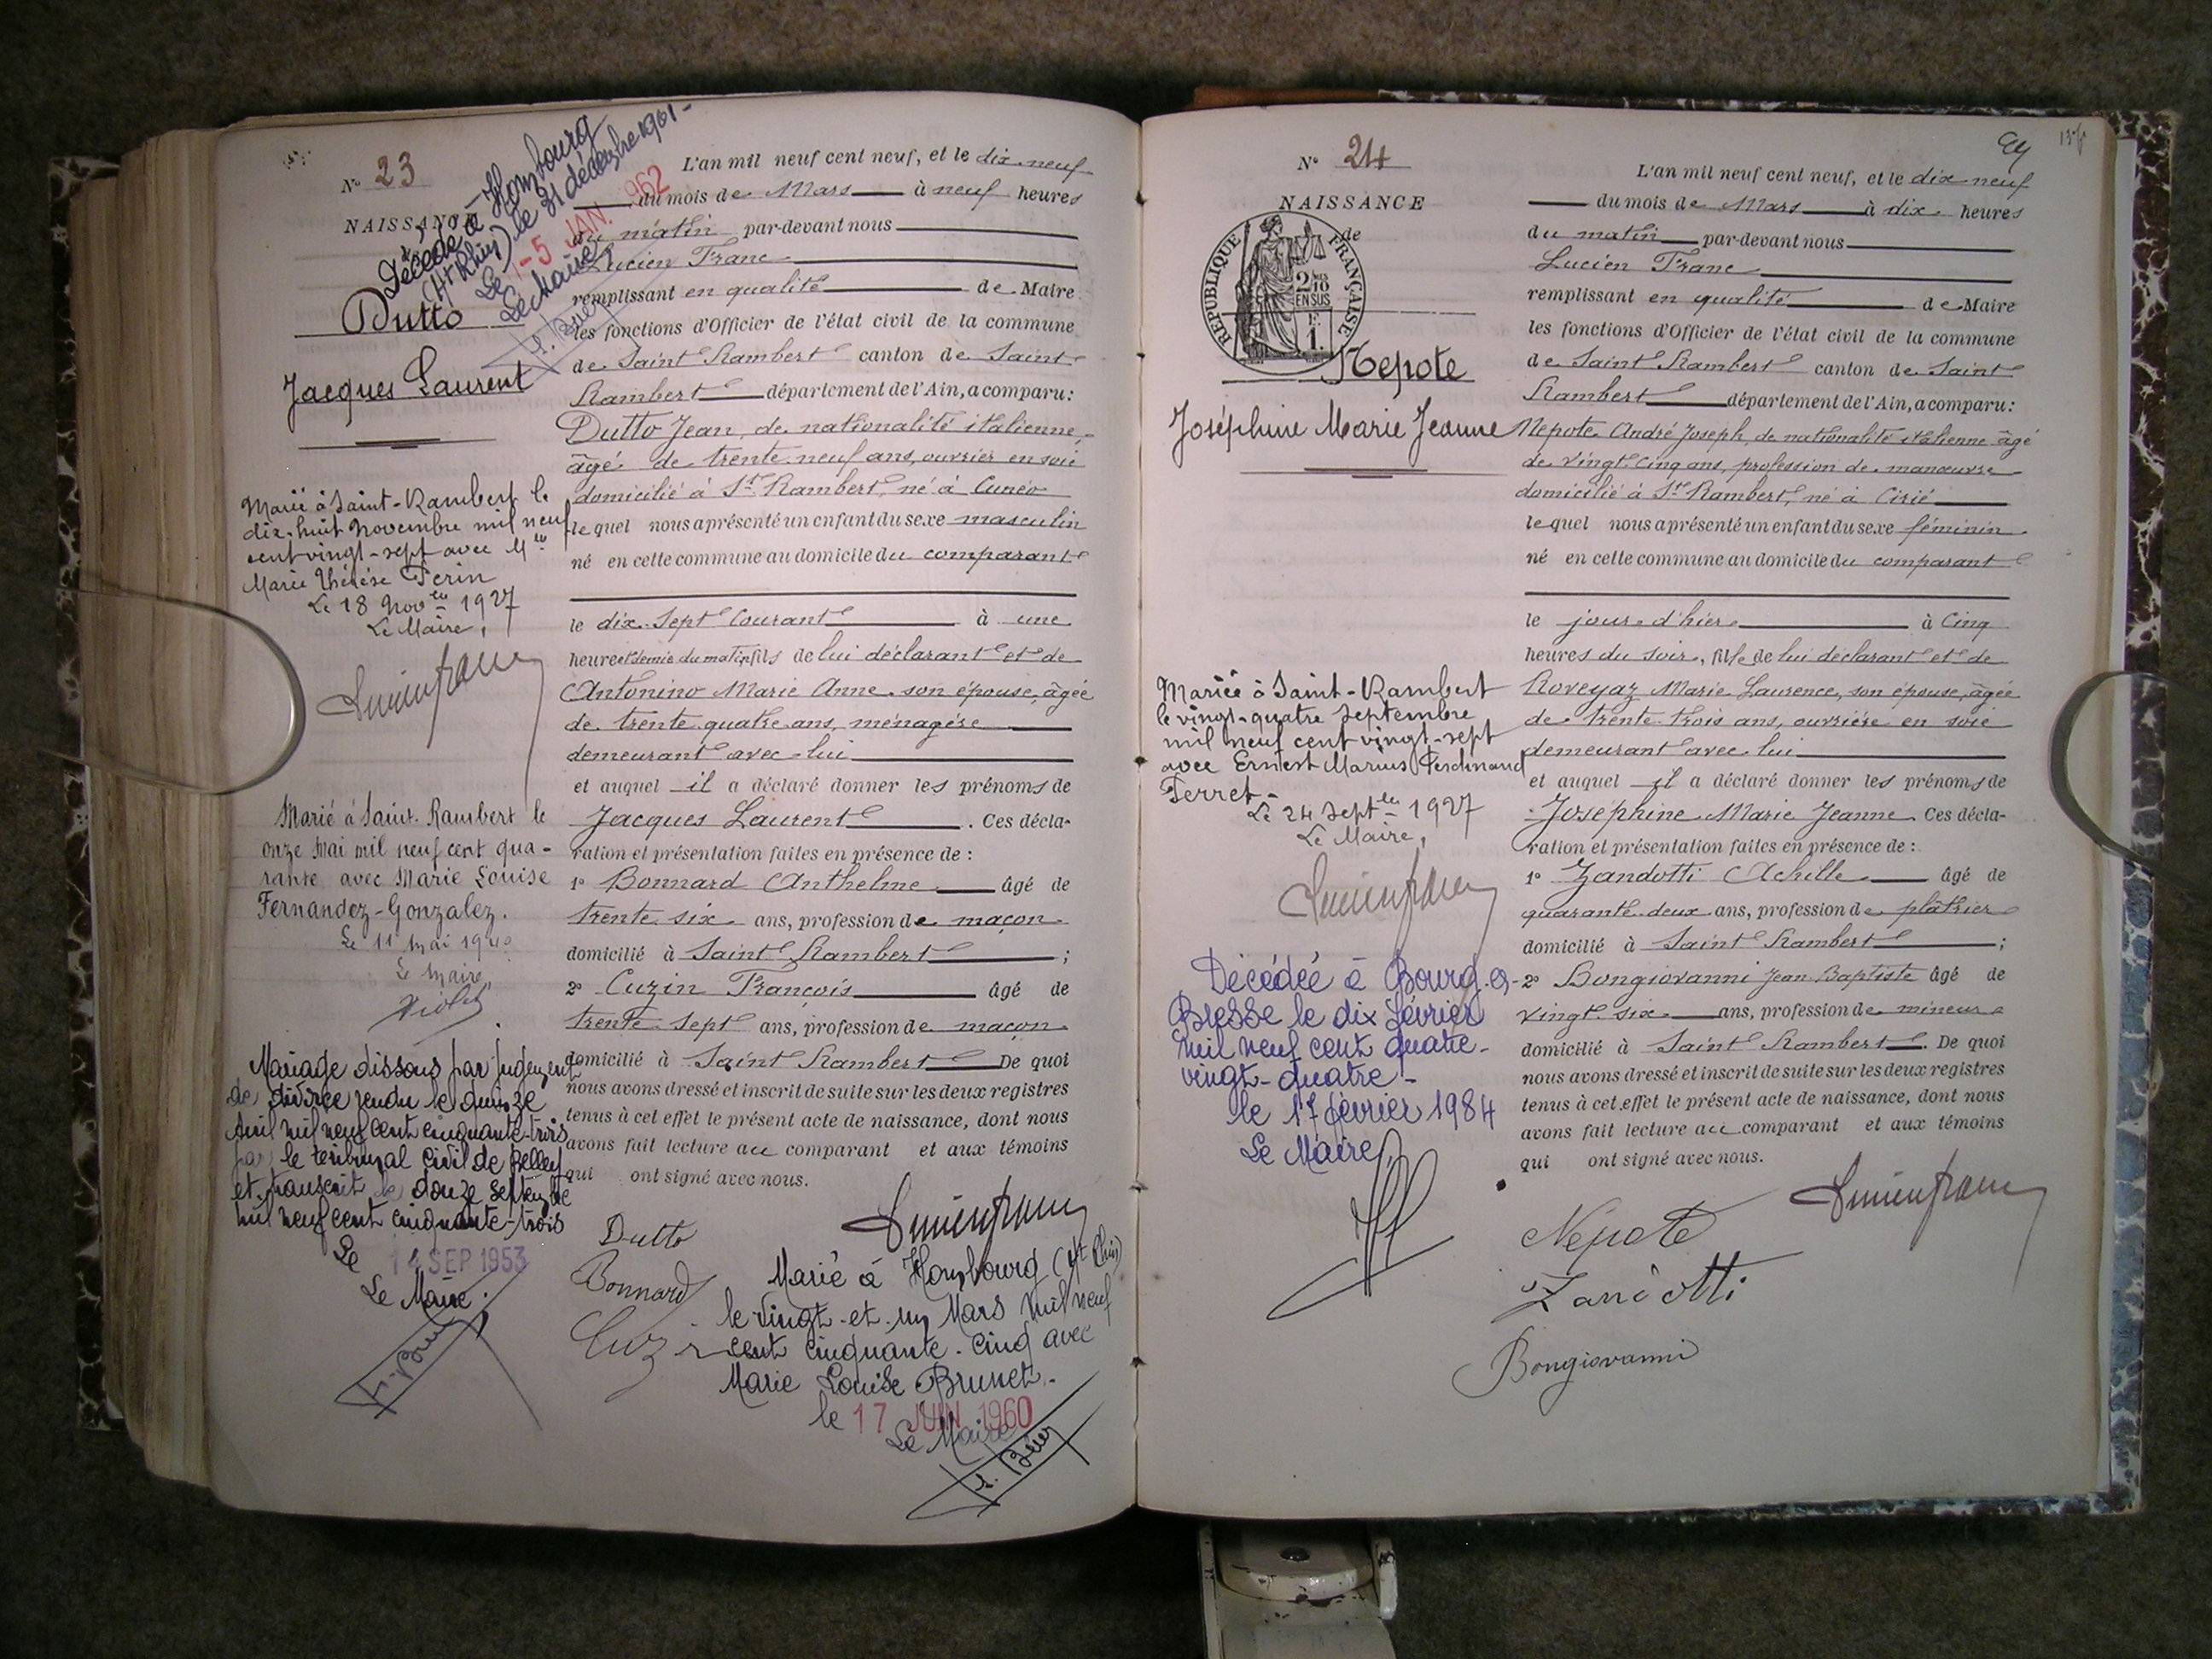 N° 23
NAISSANCE
de
Dutto
Jacques Laurent
Décédé à Hombourg
(Ht Rhin) le 31 décembre 1961-
Le - 5 JAN. 1962
Marié à Saint-Rambert le
dix-huit Novembre mil neuf
cent vingt-sept avec Mlle
Marie Thérèse Perin
Le 18 Nov^bre 1927
Le Maire,
Lucien Franc
Marié à Saint-Rambert le
onze Mai mil neuf cent qua-
rante avec Marie Louise
Fernandez-Gonzalez.
Le 11 Mai 1940
Le Maire,
Violet
Mariage dissous par jugement
de divorce rendu le quinze
Avril mil neuf cent cinquante-trois
par le tribunal civil de Belley
et transcrit le douze Septembre
mil neuf cent cinquante-trois
Le 14 SEP 1953
Le Maire.
L'an mil neuf cent neuf, et le dix-neuf
du mois de Mars à neuf heures
du matin par-devant nous
Lucien Franc
remplissant en qualité de Maire
les fonctions d'Officier de l'état civil de la commune
de Saint Rambert canton de Saint
Rambert département de l'Ain, a comparu:
Dutto Jean, de nationalité italienne,
âgé de trente-neuf ans, ouvrier en soie
domicilié à St Rambert, né à Cunéo
lequel nous a présenté un enfant du sexe masculin
né en cette commune au domicile du comparant
le dix-sept courant à une
heure et demie du matin, fils de lui déclarant et de
Antonino Marie Anne, son épouse, âgée
de trente-quatre ans, ménagère
demeurant avec lui
et auquel il a déclaré donner les prénoms de
Jacques Laurent. Ces décla-
ration et présentation faites en présence de :
1° Bonnard Anthelme âgé de
trente-six ans, profession de maçon
domicilié à Saint Rambert ;
2° Cuzin François âgé de
trente-sept ans, profession de maçon
domicilié à Saint Rambert De quoi
nous avons dressé et inscrit de suite sur les deux registres
tenus à cet effet le présent acte de naissance, dont nous
avons fait lecture au comparant et aux témoins
qui ont signé avec nous.
Dutto
Lucien Franc
Bonnard
Cuzin
Marié à Hombourg (Ht Rhin)
le vingt-et-un Mars mil neuf
cent cinquante-cinq avec
Marie Louise Brunet.
le 17 JUIN 1960
Le Maire
N° 24
NAISSANCE
de
REPUBLIQUE FRANÇAISE
2/10
EN SUS
F.
1.
Nepote
Joséphine Marie Jeanne
Mariée à Saint-Rambert
le vingt-quatre Septembre
mil neuf cent vingt-sept
avec Ernest Marius Ferdinand
Ferret-
Le 24 Sept^bre 1927
Le Maire,
Lucien Franc
Décédée à Bourg-en-
Bresse le dix février
mil neuf cent quatre-
vingt-quatre-
le 17 février 1984
Le Maire,
L'an mil neuf cent neuf, et le dix-neuf
du mois de Mars à dix heures
du matin par-devant nous
Lucien Franc
remplissant en qualité de Maire
les fonctions d'Officier de l'état civil de la commune
de Saint Rambert canton de Saint
Rambert département de l'Ain, a comparu:
Nepote André Joseph, de nationalité italienne âgé
de vingt-cinq ans, profession de manœuvre
domicilié à St Rambert, né à Cirié
lequel nous a présenté un enfant du sexe féminin
né en cette commune au domicile du comparant
le jour d'hier à cinq
heures du soir, fille de lui déclarant et de
Roveyaz Marie Laurence, son épouse, âgée
de trente-trois ans, ouvrière en soie
demeurant avec lui
et auquel il a déclaré donner les prénoms de
Joséphine Marie Jeanne. Ces décla-
ration et présentation faites en présence de :
1° Zandotti Achille âgé de
quarante-deux ans, profession de plâtrier
domicilié à Saint Rambert ;
2° Bongiovanni Jean Baptiste âgé de
vingt-six ans, profession de mineur
domicilié à Saint Rambert. De quoi
nous avons dressé et inscrit de suite sur les deux registres
tenus à cet effet le présent acte de naissance, dont nous
avons fait lecture au comparant et aux témoins
qui ont signé avec nous.
Nepote
Lucien Franc
Bongiovanni